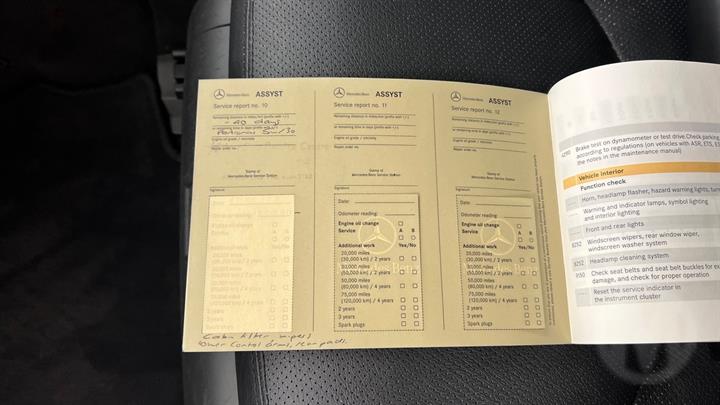 Mercedes-Benz ASSYST
Service report no. 10
Remaining distance in miles/km (prefix with +/-)
- 40 days
or remaining time in days (prefix with +/-)
5w/30
Engine oil grade / viscosity
Repair order no.
Stamp of
Mercedes-Benz Service Station
Signature
Cabin filter wipers
lower Control arms, rear pads.
Mercedes-Benz ASSYST
Service report no. 11
Remaining distance in miles/km (prefix with +/-)
or remaining time in days (prefix with +/-)
Engine oil grade / viscosity
Repair order no.
Stamp of
Mercedes-Benz Service Station
Signature
Date:
Odometer reading:
Engine oil change
Service A B
Additional work Yes/No
20,000 miles
(30,000 km) / 2 years
30,000 miles
(50,000 km) / 2 years
50,000 miles
(80,000 km) / 4 years
75,000 miles
(120,000 km) / 4 years
2 years
3 years
Spark plugs
Mercedes-Benz ASSYST
Service report no. 12
Remaining distance in miles/km (prefix with +/-)
or remaining time in days (prefix with +/-)
Engine oil grade / viscosity
Repair order no.
Stamp of
Mercedes-Benz Service Station
Signature
Date:
Odometer reading:
Engine oil change
Service A B
Additional work Yes/No
20,000 miles
(30,000 km) / 2 years
30,000 miles
(50,000 km) / 2 years
50,000 miles
(80,000 km) / 4 years
75,000 miles
(120,000 km) / 4 years
2 years
3 years
Spark plugs
4290 Brake test on dynamometer or test drive. Check parking
according to regulations (on vehicles with ASR, ETS,
the notes in the maintenance manual)
Vehicle interior
Function check
Horn, headlamp flasher, hazard warning lights,
Warning and indicator lamps, symbol lighting
and interior lighting
Front and rear lights
8252 Windscreen wipers, rear window wiper,
windscreen washer system
8252 Headlamp cleaning system
9150 Check seat belts and seat belt buckles for
damage, and check for proper operation
Reset the service indicator in
the instrument cluster